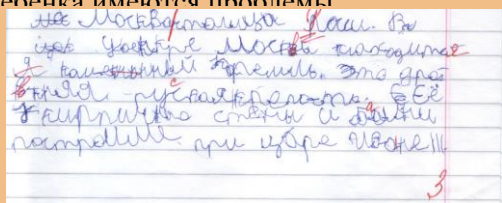 ребенка имеются проблемы
Москва столица Наши. В
центре Москва находитса
каменный Кремль. Это древ
няя руская крепость. ЕЁ
кирпично стены и башни
построили при цбре Иване III
3